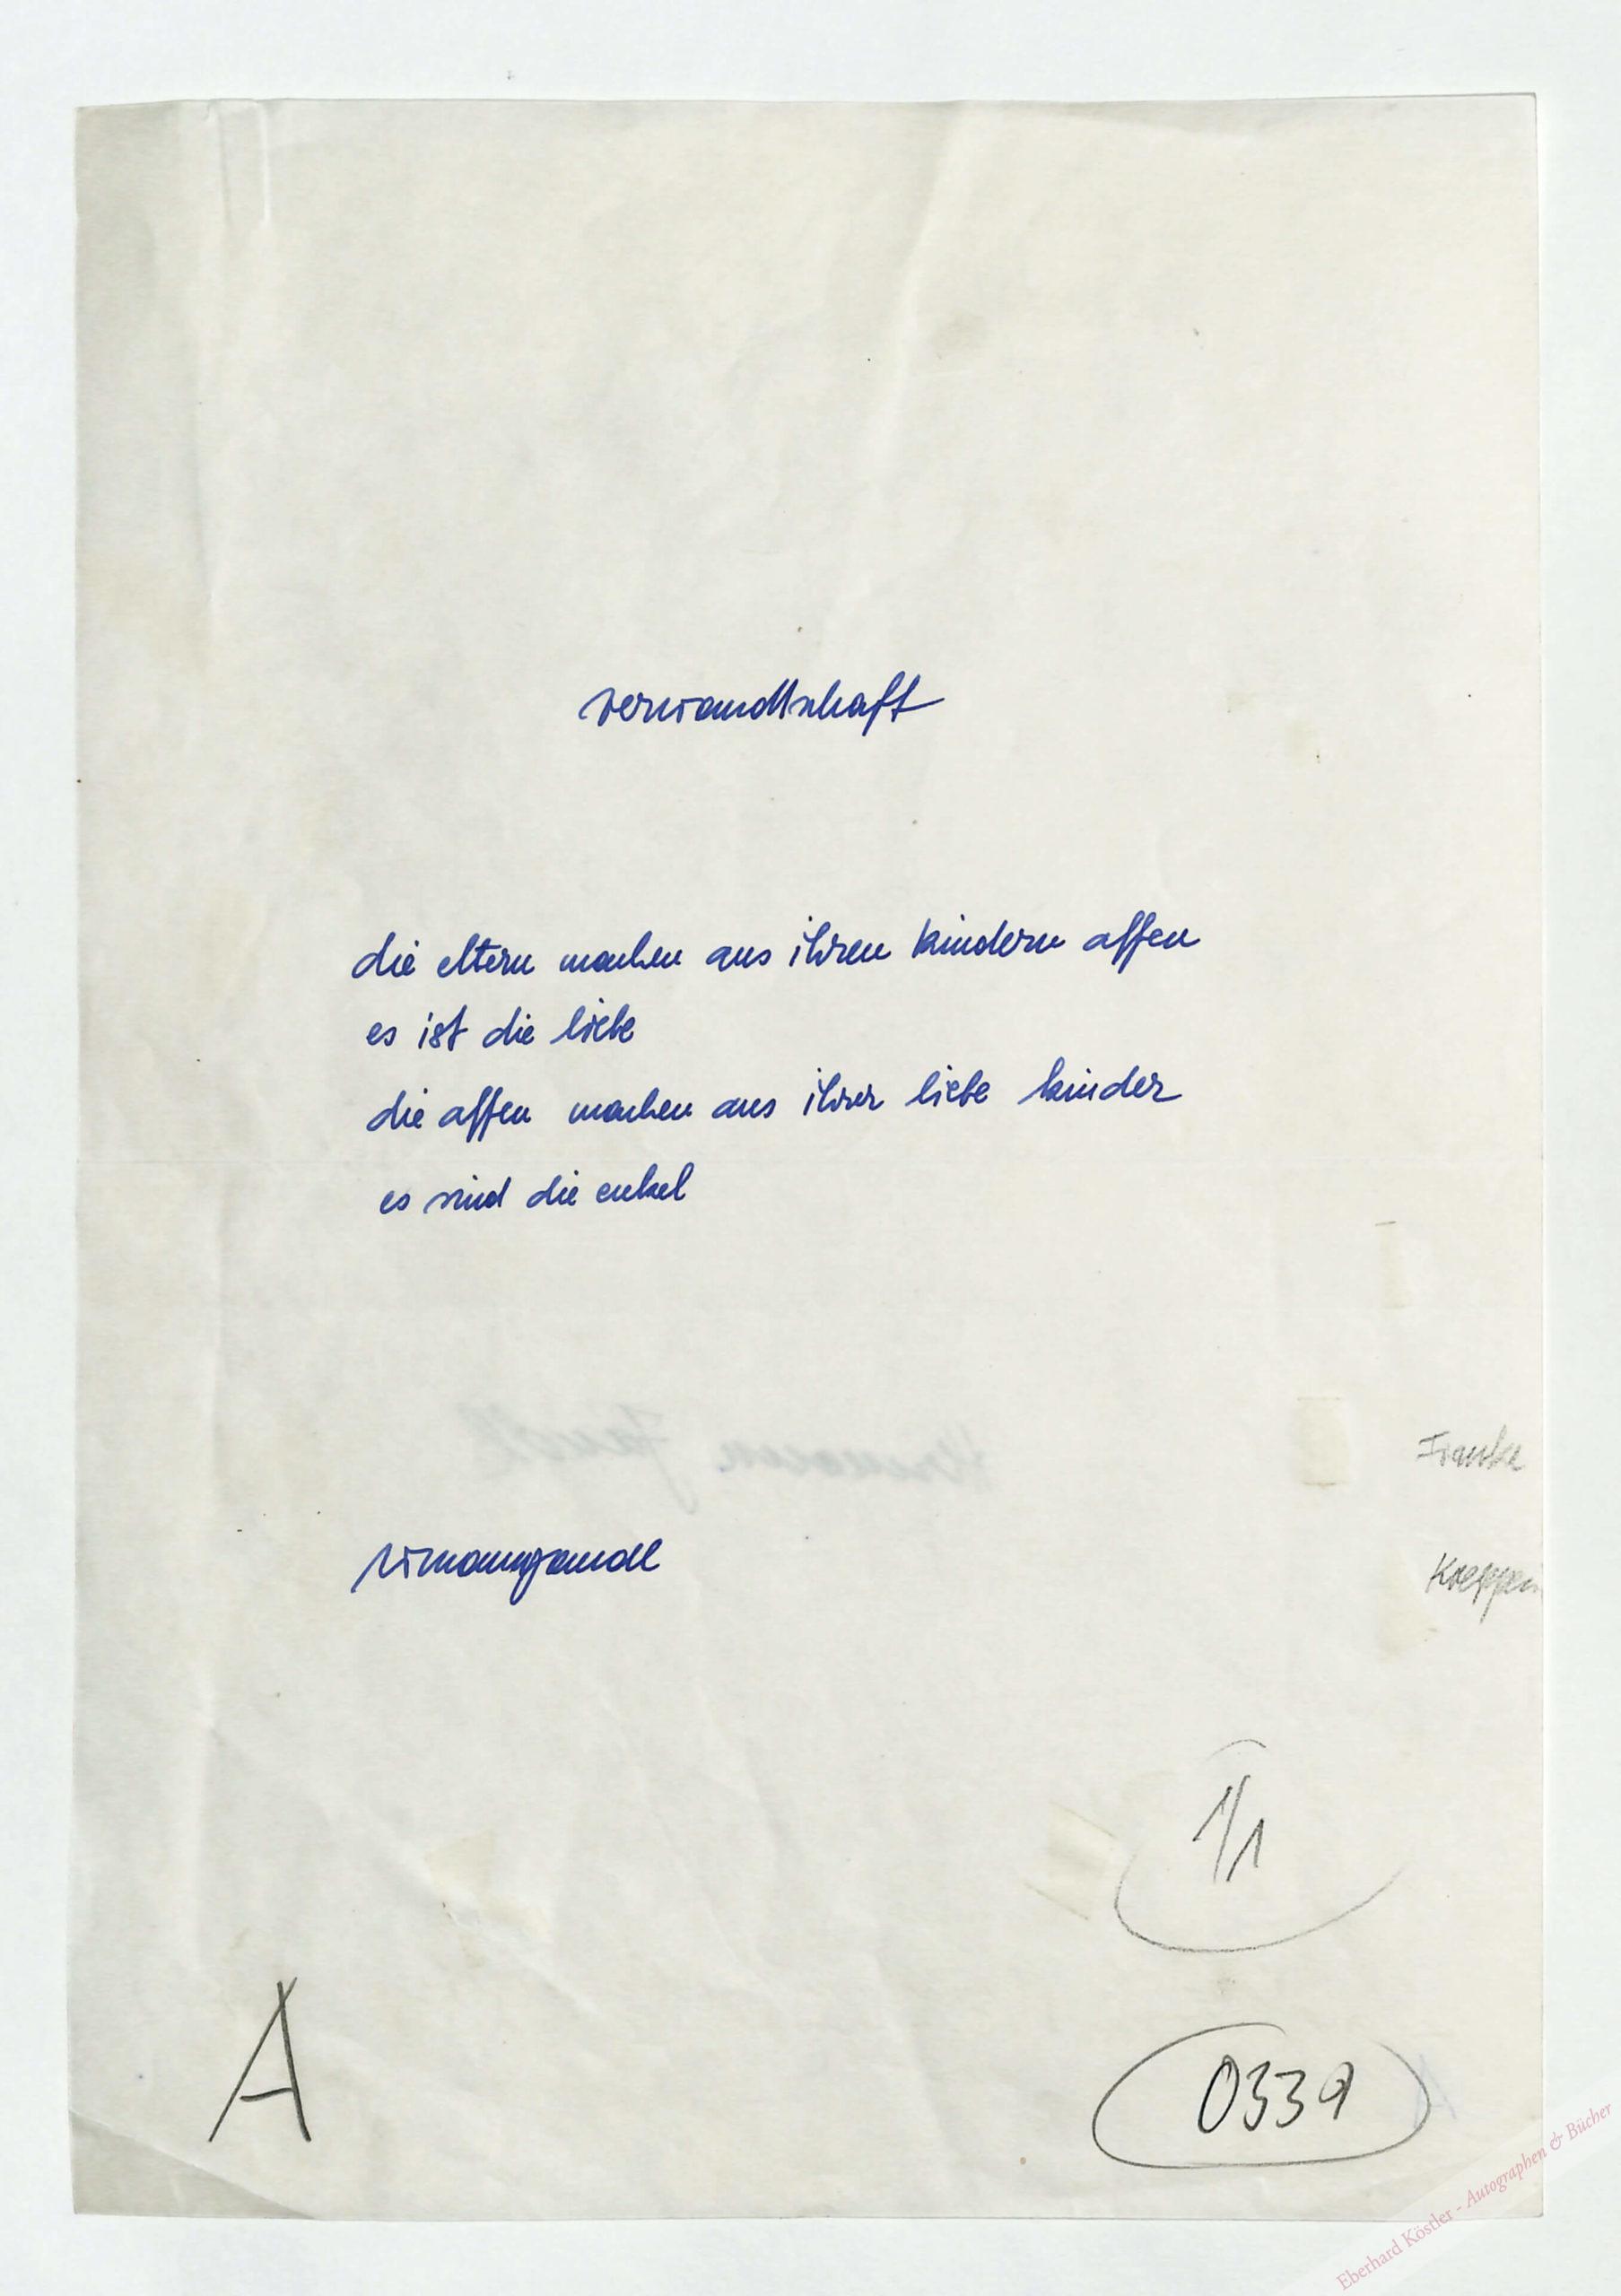 verwandtschaft
die eltern machen aus ihren kindern affen
es ist die liebe
die affen machen aus ihrer liebe kinder
es sind die enkel
Hermann Jandl
Franke
hermann jandl
1/1
A
0339
Eberhard Köstler - Autographen & Bücher